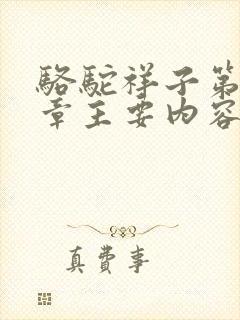 駱駝祥子第
章主要内容
真費事